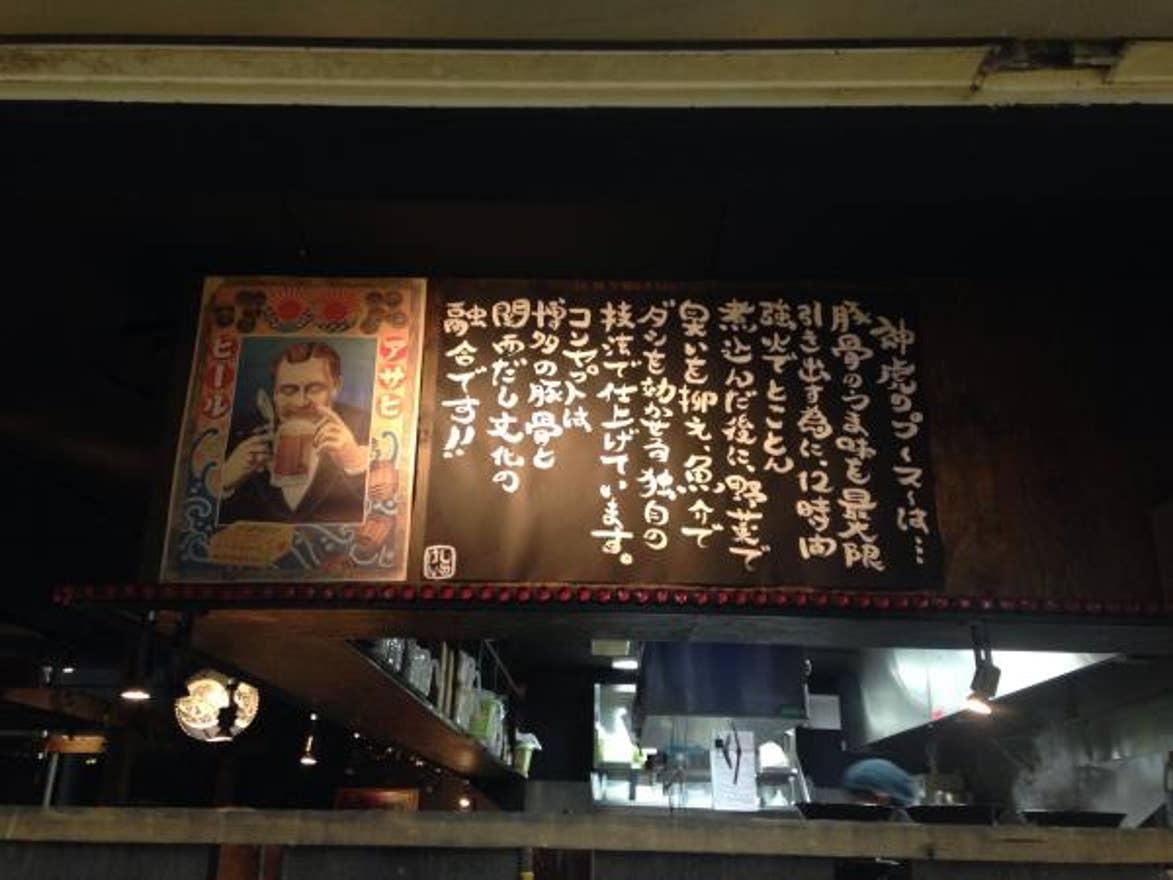 神虎のスープは…
豚骨のうま味を最大限
引き出す為に、12時間
強火でとことん
煮込んだ後に、野菜で
臭いを抑え、魚介で
ダシを効かせる独自の
技法で仕上げています。
コンセプトは
博多の豚骨と
関西だし文化の
融合です!!
アサヒ
ビール